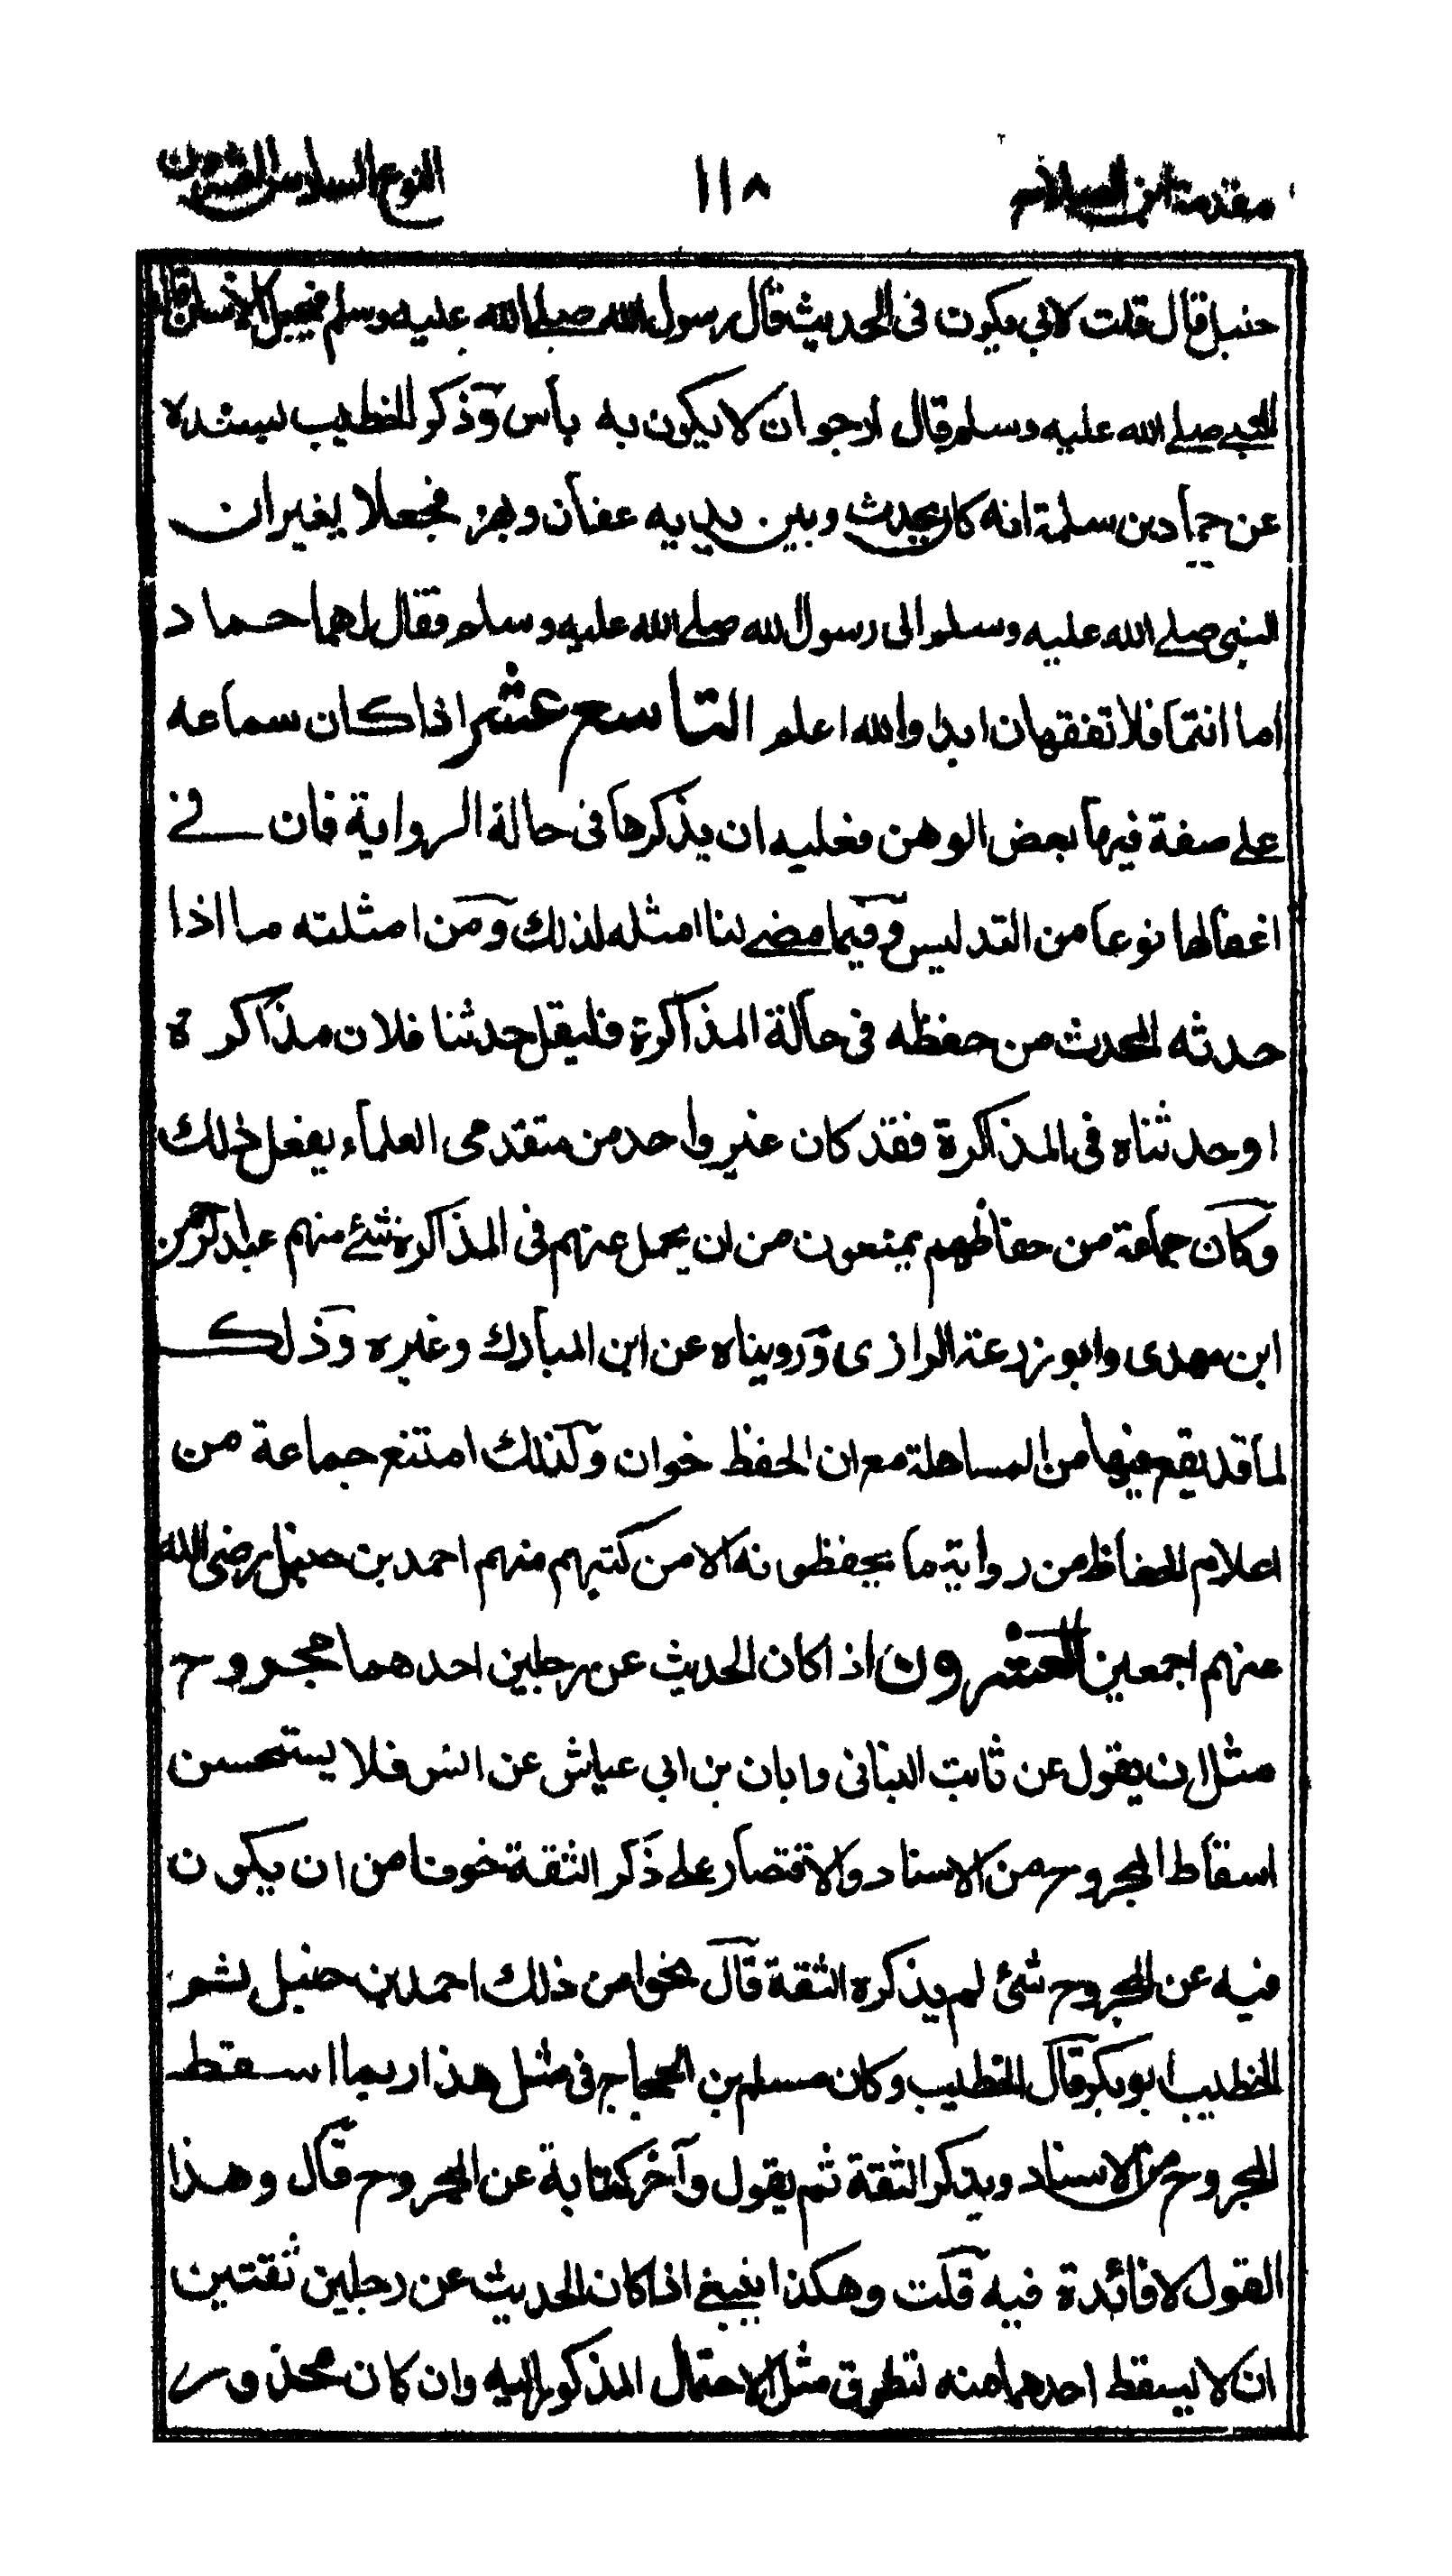 مقدمة ابن الصلاح
١١٨
النوع السادس والعشرون
حنبل قال قلت لابي يكون في الحديث قال رسول الله صلى الله عليه وسلم فيجعل الانسان قال
النبي صلى الله عليه وسلم قال ارجو ان لا يكون به بأس وذكر الخطيب بسنده
عن حماد بن سلمة انه كان يحدث وبين يديه عفان وبهز فجعلا يغيران
النبي صلى الله عليه وسلم الى رسول الله صلى الله عليه وسلم فقال لهما حماد
اما انتما فلا تفقهان ابدا والله اعلم التاسع عشر اذا كان سماعه
على صفة فيها بعض الوهن فعليه ان يذكرها في حالة الرواية فان في
اغفالها نوعا من التدليس وفيما مضى لنا امثله لذلك ومن امثلته ما اذا
حدثه المحدث من حفظه في حالة المذاكرة فليقل حدثنا فلان مذاكرة
او حدثناه في المذاكرة فقد كان غير واحد من متقدمى العلماء يفعل ذلك
وكان جماعة من حفاظهم يمنعون من ان يحمل عنهم في المذاكرة شئ منهم عبد الرحمن
ابن مهدى وابو زرعة الرازى ورويناه عن ابن المبارك وغيره وذلك
لما قد يقع فيها من المساهلة مع ان الحفظ خوان وكذلك امتنع جماعة من
اعلام الحفاظ من رواية ما يحفظونه الا من كتبهم منهم احمد بن حنبل رضى الله
عنهم اجمعين العشرون اذا كان الحديث عن رجلين احدهما مجروح
مثل ان يقول عن ثابت البناني وابان بن ابي عياش عن انس فلا يستحسن
اسقاط المجروح من الاسناد والاقتصار على ذكر الثقة خوفا من ان يكون
فيه عن المجروح شئ لم يذكره الثقة قال نحوا من ذلك احمد بن حنبل ثم
الخطيب ابو بكر قال الخطيب وكان مسلم بن الحجاج في مثل هذا ربما اسقط
المجروح من الاسناد ويذكر الثقة ثم يقول وآخر كناية عن المجروح قال وهذا
القول لا فائدة فيه قلت وهكذا ينبغي اذا كان الحديث عن رجلين ثقتين
ان لا يسقط احدهما منه لتطرق مثل الاحتمال المذكور اليه وان كان محذور